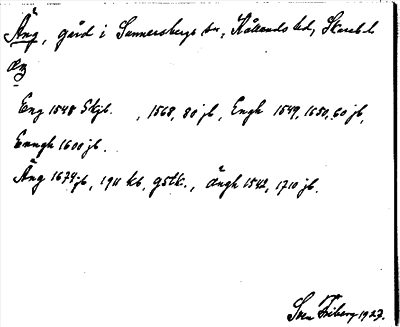 Äng, gård i Sunnersbergs sn, Kållands hd, Skarab. l.
äŋ
Eng 1548 Skjb. , 1568, 80 jb, Engh 1549, 1650, 60 jb,
Enngh 1600 jb.
Äng 1674 jb, 1911 kb, gstk., ängh 1542, 1710 jb.
Sven Friberg 1927.